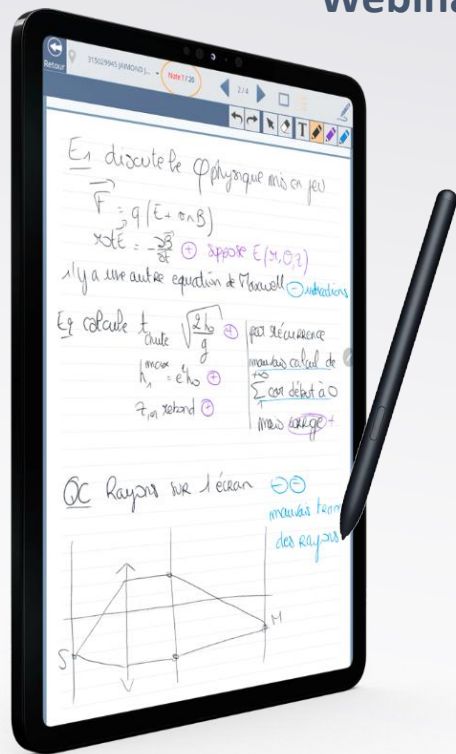 Webina
Retour
315029945 JAIMOND J...
Note 1 / 20
2/4
T
E1 discute le φ physique mis en jeu
F = q (E + v ∧ B)
rot E = - ∂B/∂t ⊕ suppose E(r, θ, z)
il y a une autre équation de Maxwell ⊖ indications
E2 calcule t chute √(2h₀/g) ⊕
h₁ max = e²h₀ ⊕
rebond ⊕
par récurrence
mauvais calcul de
+∞
∑ car début à 0
1
mais corrigé +
QC Rayons sur l'écran ⊖⊖
mauvais
des rayons
S
M